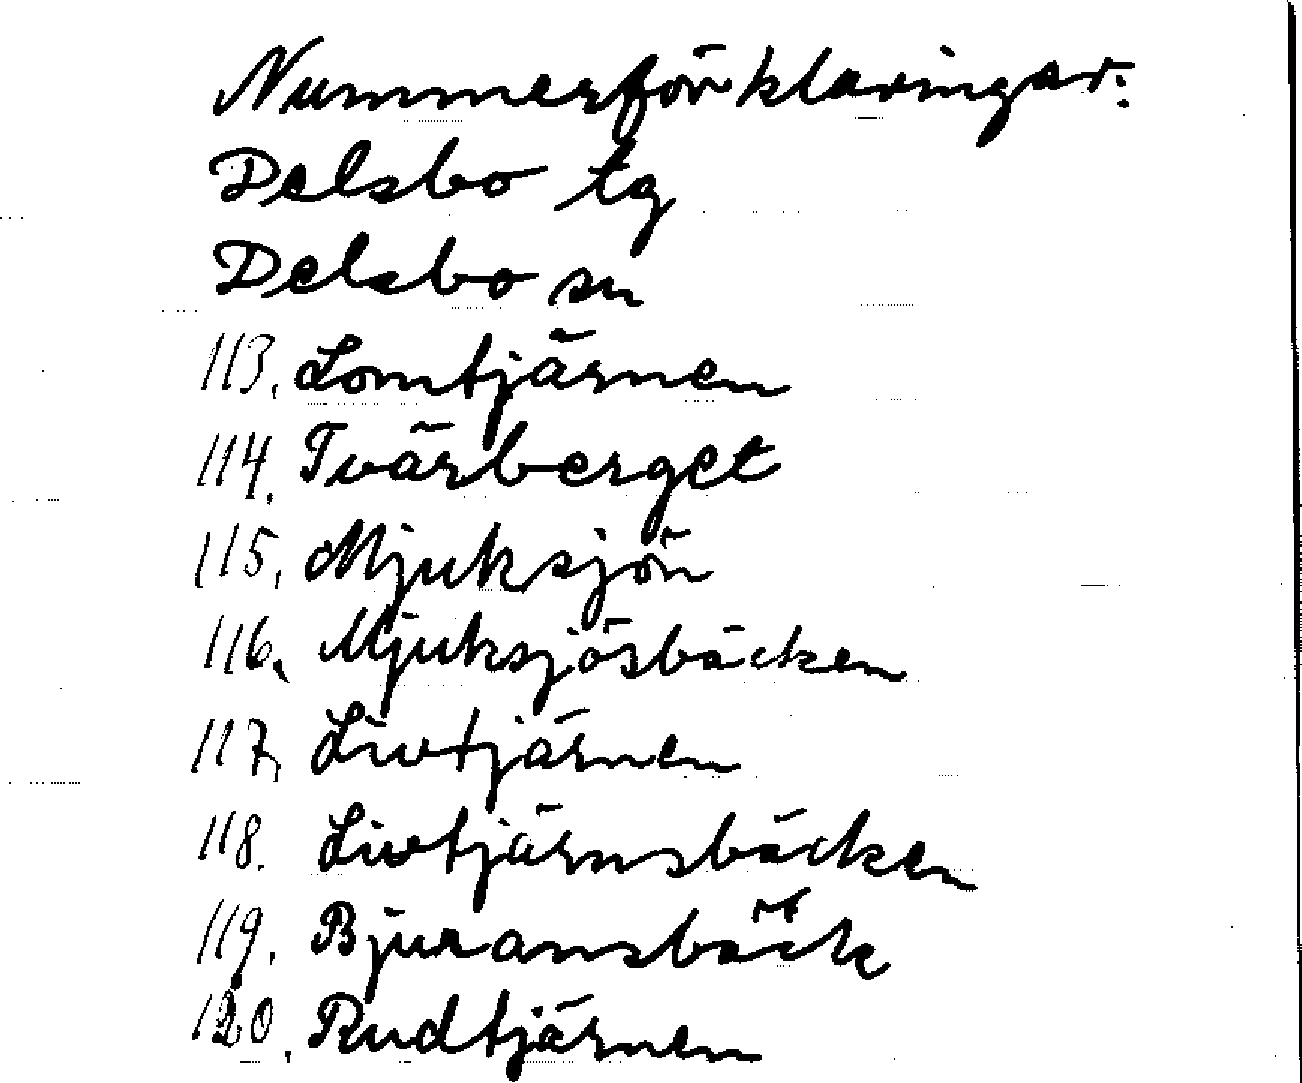 Nummerförklaringar:
Delsbo tg
Delsbo sn
113. Lomtjärnen
114. Tvärberget
115. Mjuksjön
116. Mjuksjösbäcken
117. Livtjärnen
118. Livtjärnsbäcken
119. Bjuransbäck
120. Rudtjärnen